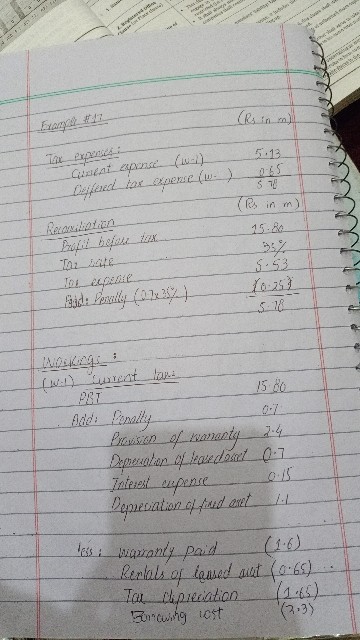 Example #17
(Rs in m)
Tax expenses:
Current expense (w-1) 5.13
Deffered tax expense (w- ) 0.65
5.78
(Rs in m)
Reconciliation
Profit before tax 15.80
Tax rate 35%
Tax expense 5.53
Add: Penalty (0.7x35%) 0.25
5.78
Workings:
(w-1) Current tax
PBT 15.80
Add: Penalty 0.7
Provision of warranty 2.4
Depreciation of leased asset 0.7
Interest expense 0.15
Depreciation of fixed asset 1.1
less: warranty paid (1.6)
Rentals of leased asset (0.65)
Tax depreciation (1.65)
Borrowing cost (2.3)